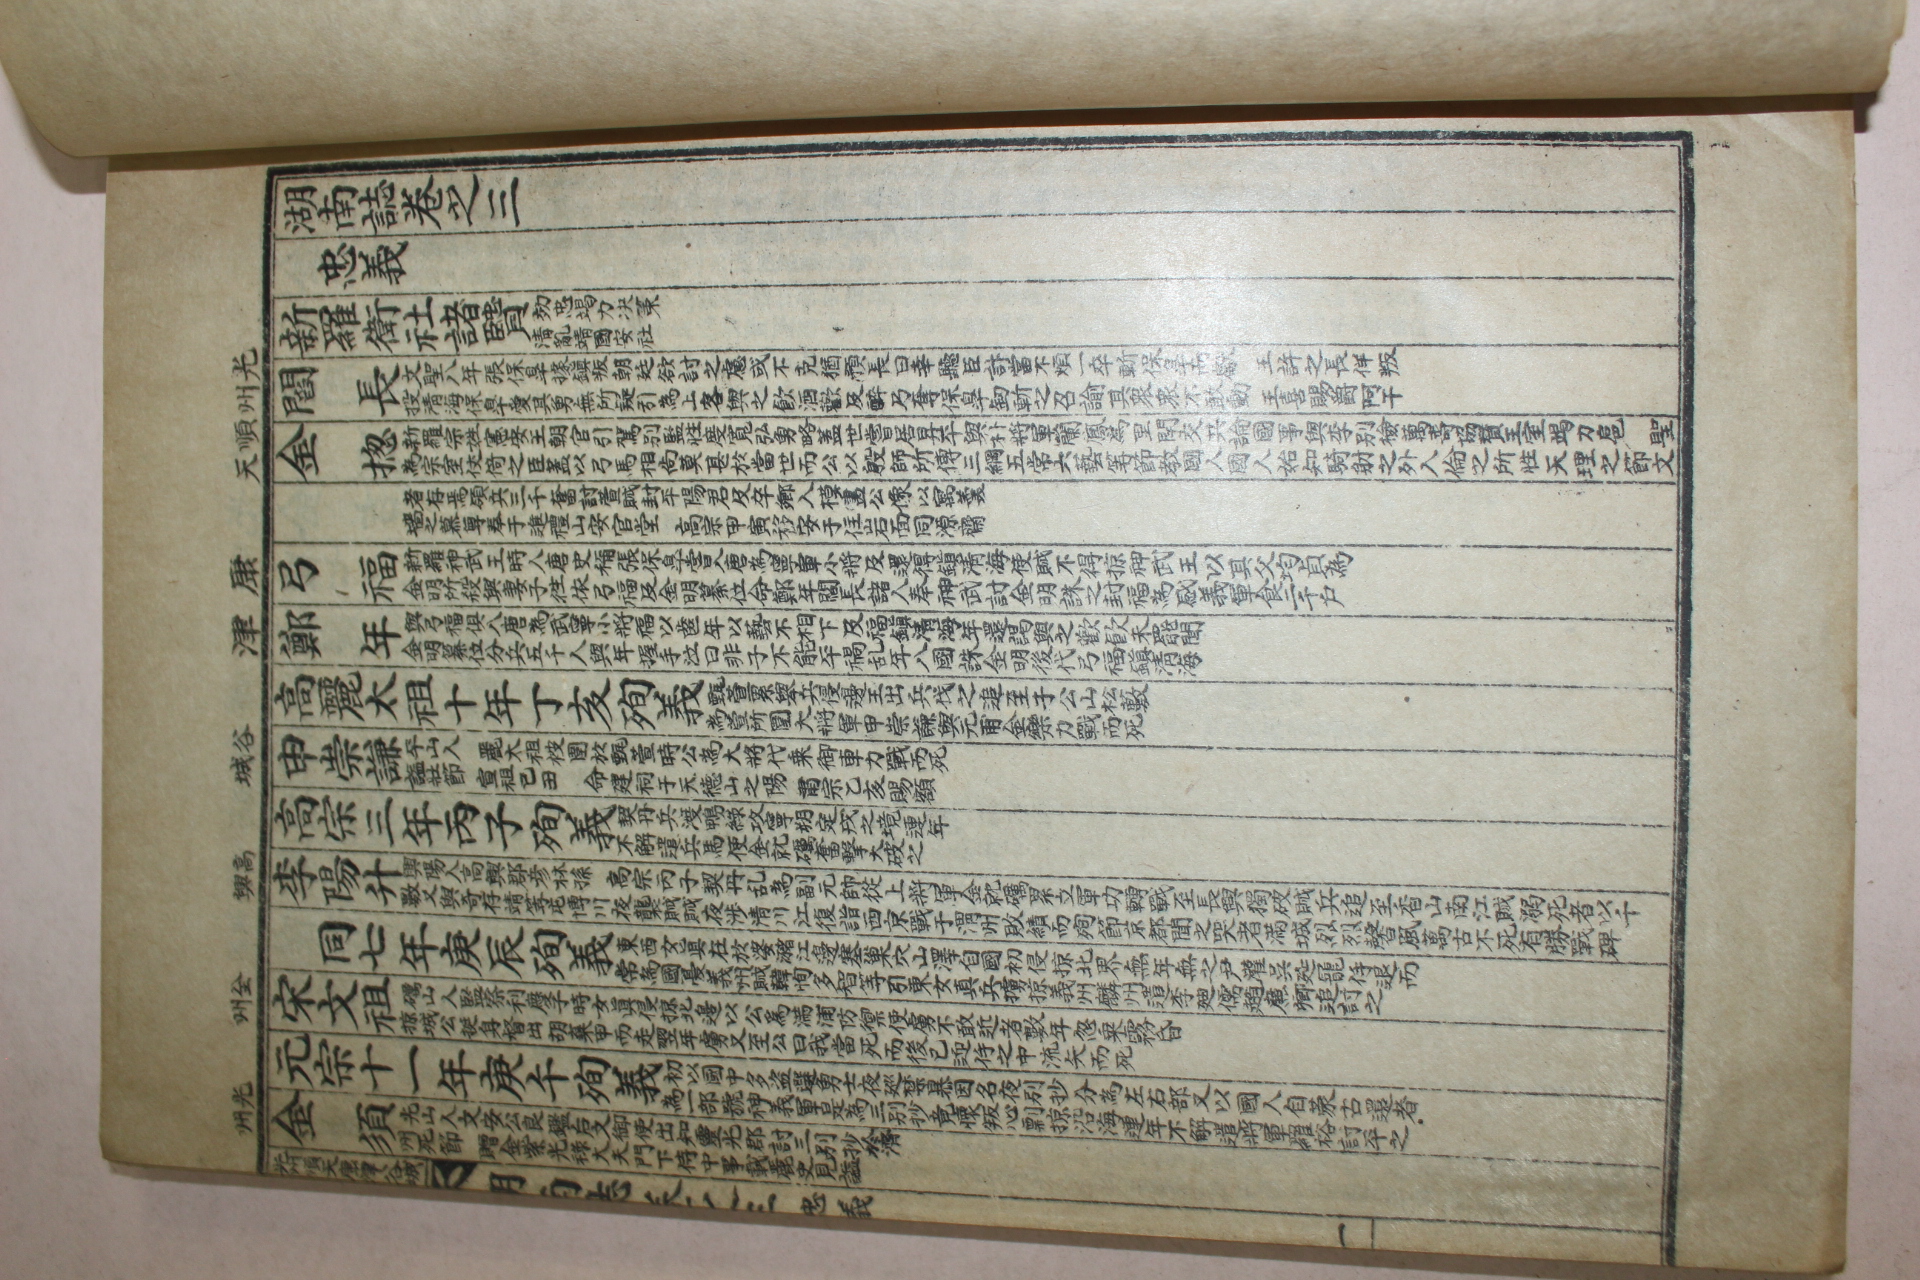 光州順天
康津
谷城
高興
全州
光州
湖南誌卷之三
忠義
新羅衛社諸賢
効忠竭力决策
清亂靖國安社
閻長
文聖八年張保皐據鎮叛朝廷欲討之慮或不克猶預長曰幸聽臣計當不煩一卒斬保皐而獻 王許之長佯叛
投清海保皐愛其勇無所疑引為上客與之飲酒歡及醉乃奪保皐釰斬之召諭其衆衆不敢動 王喜賜爵阿干
金摠
新羅宗姓憲安王朝官引駕別監性度寬弘勇略盖世嘗居昇平與朴將軍蘭鳳為里閈交共論國事與李別檢萬壽協贊王室竭力扈 聖
為宗室使倚之臣盖以弓馬相尚莫甚於當世而公以殷師所傳三綱五常六藝等節教國人國人始知騎射之外人倫之所性天理之節文
者存焉領兵三千奮討萱賊封平陽君及卒鄉人模畫公像以寓羹
墻之慕尊奉于進禮山安官堂 高宗甲寅移安于住岩面同源齋
弓福
新羅神武王時人唐史稱張保皐嘗入唐為寧軍小將及還得鎮清海使賊不得掠神武王以其父均貞為
金明所殺與妻子徃依弓福及金明纂位命鄭年閻長諸人奉神武討金明誅之封福為感義軍食二千户
鄭年
與弓福俱入唐為武寧小將福以齒年以藝不相下及福鎮清海年還謁與之歡飲未罷聞
金明纂位分兵五千人與年握手泣曰非子不能平禍乱年入國誅金明後代弓福鎮清海
高麗太祖十年丁亥殉義
甄萱累舉兵侵邊王出兵伐之追至于公山松藪
為萱所圍大將軍申崇謙與元甫金樂力戰而死
申崇謙
平山人 麗太祖被圍於甄萱時公為大將代乘御車力戰而死
謚壯節 宣祖己丑 命建祠于天德山之陽 肅宗乙亥賜額
高宗三年丙子殉義
契丹兵渡鴨綠攻寧朔定戎之境連年
不解遣兵馬使金就礪奮擊大破之
李陽升
興陽人高興郡彦林孫 高宗丙子契丹乱為副元師從上將軍金就礪累立軍功轉戰至長興獨破賊兵追至杳山南江賊溺死者以千
數又與奇存靖等屯博川夜襲賊賊夜涉清川江復詣西京戰于渭州敗績而殉節京都聞之哭者滿城烈烈馨風萬古不死有勝戰碑
同七年庚辰殉義
東西女眞在於婆瀦江邊塞巢穴山澤自國初侵掠北界無年無之尹瓘吳延寵俘退而
常為國憂義州賊韓恂多智等引東女真兵擄掠義州麟州遣李廸儒趙廉卿追討之
宋文祖
礪山人監察利膺子時女眞侵掠北邊以公為滿浦防禦使虜不敢近者數年忽乘霧昏
掠城公挺身督出胡棄甲而走翌年虜又至公曰我當死而後已迎待之中流矢而死
元宗十一年庚午殉義
初以國中多盗選勇士夜廵禁暴因名夜別抄分為左右部又以國人自蒙古還者
為一部號神義軍是為三別抄竟懷叛心剽掠沿海連年不解遣將軍羅裕討平之
金須
光山人文安公良鑑后文御使出知靈光郡討三別抄於濟
州死節 贈金紫光祿大夫門下侍中事載麗史見謚
光州順天康津谷城
湖南誌 卷之三 忠義
一